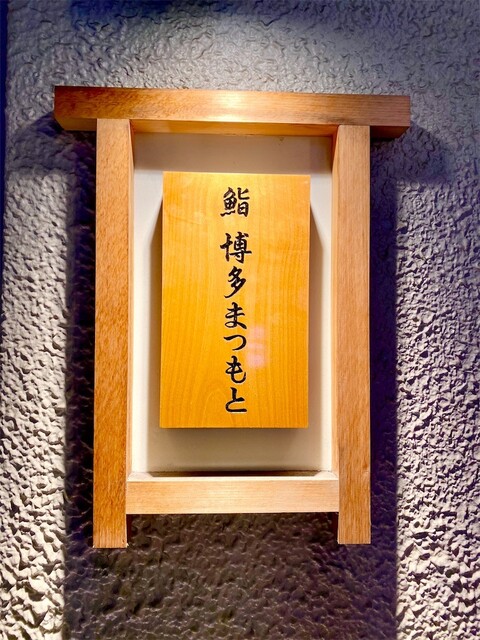 鮨 博多まつもと